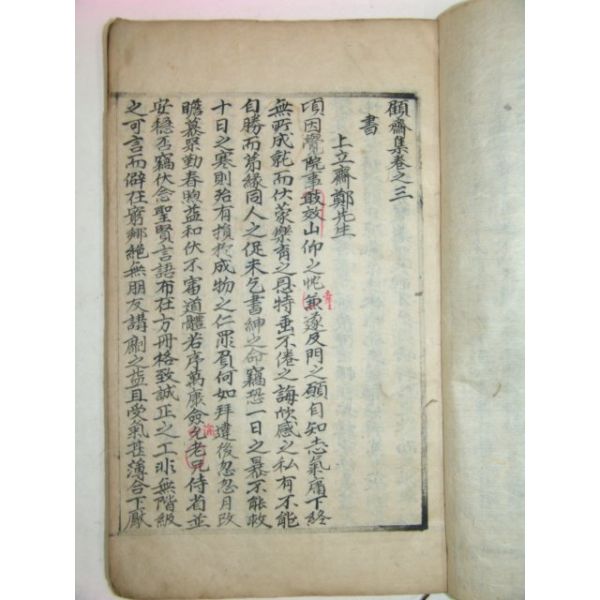 顧齋集卷之三
書
上立齋鄭先生
頃因黌院事敢效山仰之忱兼遂及門之願自知志氣庸下終
無所成就而伏蒙樂育之恩特垂不倦之誨欣感之私有不能
自勝而第緣同人之促未乞書紳之命竊恐一日之暴不能救
十日之寒則殆有損於成物之仁罪負何如拜違後忽忽月改
瞻慕采勤春煦益和伏不審道體若序萬康僉允老兄侍省並
安穩否竊伏念聖賢言語布在方冊格致誠正之工非無階級
之可言而僻在窮鄉絕無朋友講劘之益且受氣甚薄合下厭